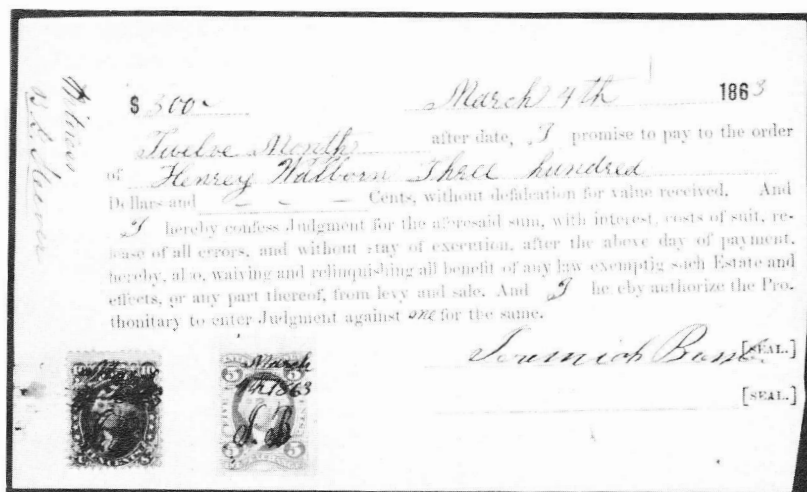 Witness
$ 300 March 4th 1863
Twelve Month after date, I promise to pay to the order
of Henrey Walborn Three hundred
Dollars and — — — Cents, without defalcation for value received. And
I hereby confess Judgment for the aforesaid sum, with interest, costs of suit, re-
lease of all errors, and without stay of execution, after the above day of payment,
hereby, also, waiving and relinquishing all benefit of any law exemptig such Estate and
effects, or any part thereof, from levy and sale. And I he eby authorize the Pro-
thonitary to enter Judgment against me for the same.
Jeremiah [SEAL.]
[SEAL.]
March
4th 1863
J. B
5 5
5 5